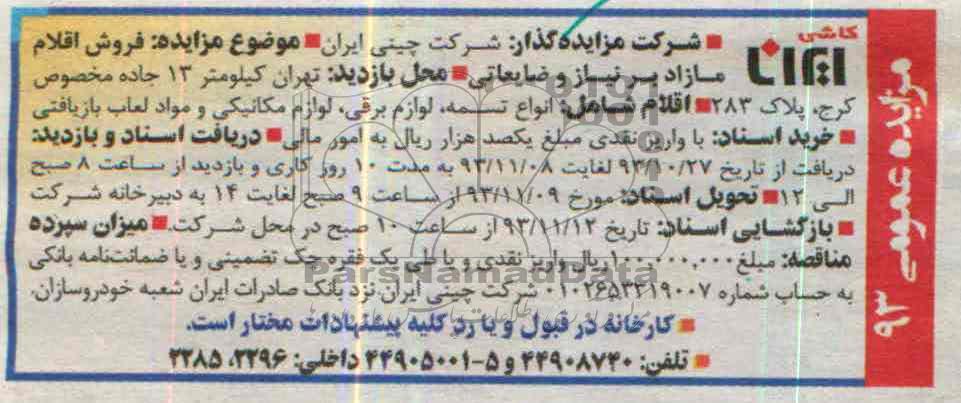 کاشی
ایرانا
مزایده عمومی ۹۳
■ شرکت مزایده‌گذار: شرکت چینی ایران ■ موضوع مزایده: فروش اقلام
مازاد بر نیاز و ضایعاتی ■ محل بازدید: تهران کیلومتر ۱۳ جاده مخصوص
کرج، پلاک ۲۸۳ ■ اقلام شامل: انواع تسمه، لوازم برقی، لوازم مکانیکی و مواد لعاب بازیافتی
■ خرید اسناد: با واریز نقدی مبلغ یکصد هزار ریال به امور مالی ■ دریافت اسناد و بازدید:
دریافت از تاریخ ۹۳/۱۰/۲۷ لغایت ۹۳/۱۱/۰۸ به مدت ۱۰ روز کاری و بازدید از ساعت ۸ صبح
الی ۱۲ ■ تحویل اسناد: مورخ ۹۳/۱۱/۰۹ از ساعت ۹ صبح لغایت ۱۴ به دبیرخانه شرکت
■ بازگشایی اسناد: تاریخ ۹۳/۱۱/۱۲ از ساعت ۱۰ صبح در محل شرکت. ■ میزان سپرده
مناقصه: مبلغ ۱۰۰,۰۰۰,۰۰۰ ریال واریز نقدی و یا طی یک فقره چک تضمینی و یا ضمانت‌نامه بانکی
به حساب شماره ۰۱۰۲۶۵۳۳۱۹۰۰۷ شرکت چینی ایران نزد بانک صادرات ایران شعبه خودروسازان.
■ کارخانه در قبول و یا رد کلیه پیشنهادات مختار است.
■ تلفن: ۴۴۹۰۸۷۴۰ و ۵-۴۴۹۰۵۰۰۱ داخلی: ۲۲۹۶، ۲۲۸۵
ParsNamadData